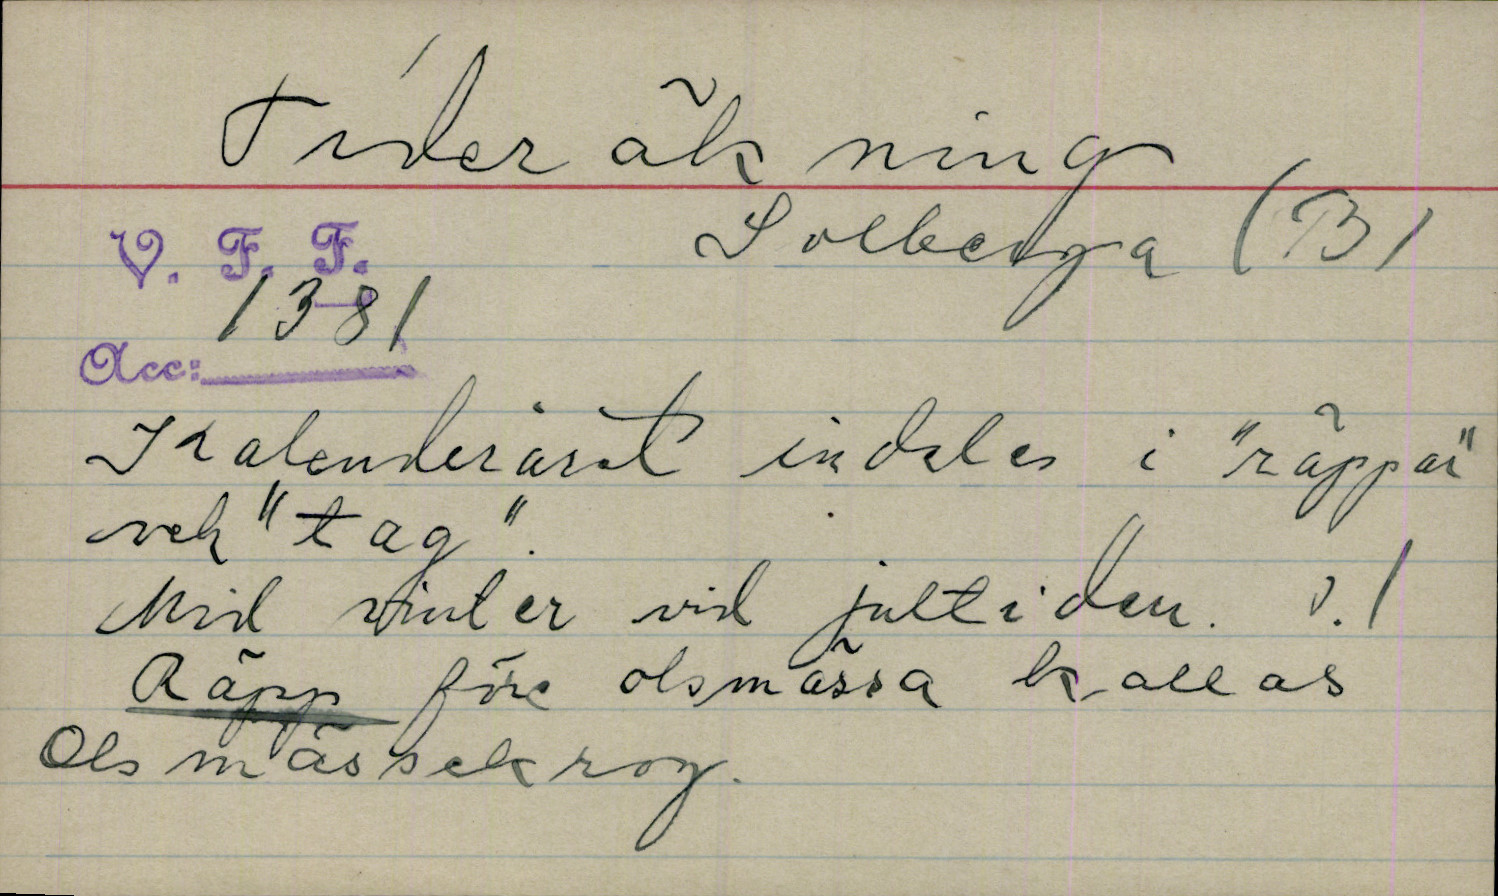 Tideräkning
Solberga (B)
V. F. F.
1381
Acc:
Kalenderåret indeles i "räppar"
och "tag".
Mid vinter vid jultiden.
Räpp före olsmässa kallas
Olsmässekrog.